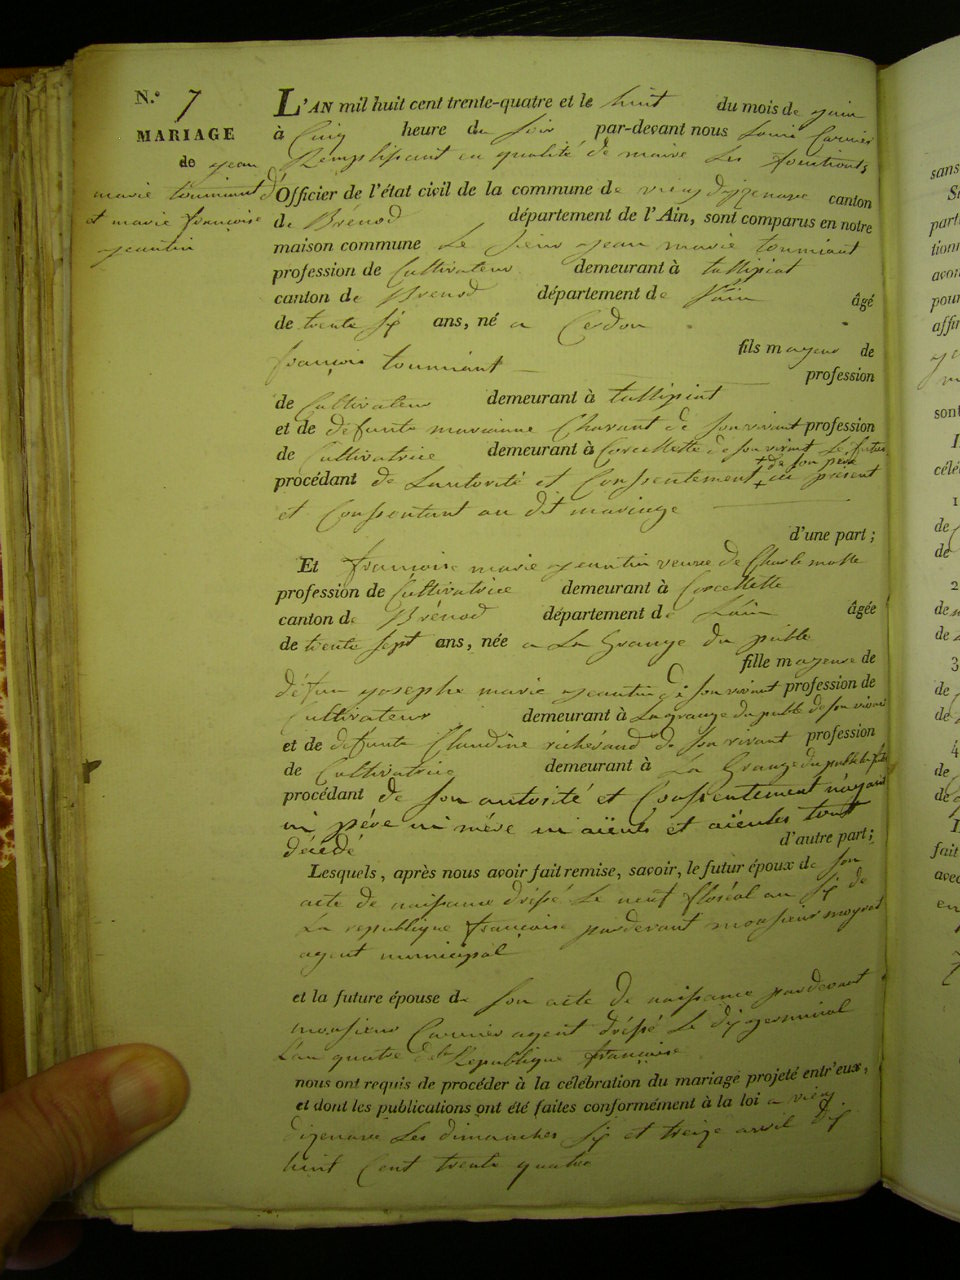 N.º 7
MARIAGE
de jean
marie tourniant
et marie françoise
jeantin
L'AN mil huit cent trente-quatre et le huit du mois de juin
à Cinq heure du soir par-devant nous Louis Carrier
Remplissant en qualité de maire les fonctions
d'Officier de l'état civil de la commune de vieu d'izenave canton
de Brénod département de l'Ain, sont comparus en notre
maison commune Le sieur jean marie tourniant
profession de Cultivateur demeurant à tallipiat
canton de Brénod département de l'ain âgé
de trente six ans, né a Cerdon
fils majeur de
françois tourniant profession
de Cultivateur demeurant à tallipiat
et de defunte marianne Charant de son vivant profession
de Cultivatrice demeurant à Corcellette de son vivant Le futur
procédant de Lautorité et Consentement + de son père + ici présent
et Consentant au dit mariage
d'une part;
Et françoise marie jeantin veuve de Charle molle
profession de Cultivatrice demeurant à Corcellette
canton de Brénod département de Lain âgée
de trente sept ans, née a La Grange du puble
fille majeure de
défun joseph marie jeantin de son vivant profession de
Cultivateur demeurant à Lagrange du puble de son vivant
et de defunte Claudine richérand de son vivant profession
de Cultivatrice demeurant à La Grange du puble la future
procédant de son autorité et Consentement n'ayant
ni père ni mère ni aïeuls et aïeules tout
décédé d'autre part;
Lesquels, après nous avoir fait remise, savoir, le futur époux de son
acte de naissance dréssé Le neuf floréal an six de
La republique françoise pardevant monsieur moyret
agent municipal
et la future épouse de son acte de naissance pardevant
monsieur Carrier agent dréssé Le dix germinal
L'an quatre de la République françoise
nous ont requis de procéder à la célébration du mariage projeté entr'eux,
et dont les publications ont été faites conformément à la loi a vieu
dizenave Les dimanches six et treize avril dix
huit Cent trente quatre